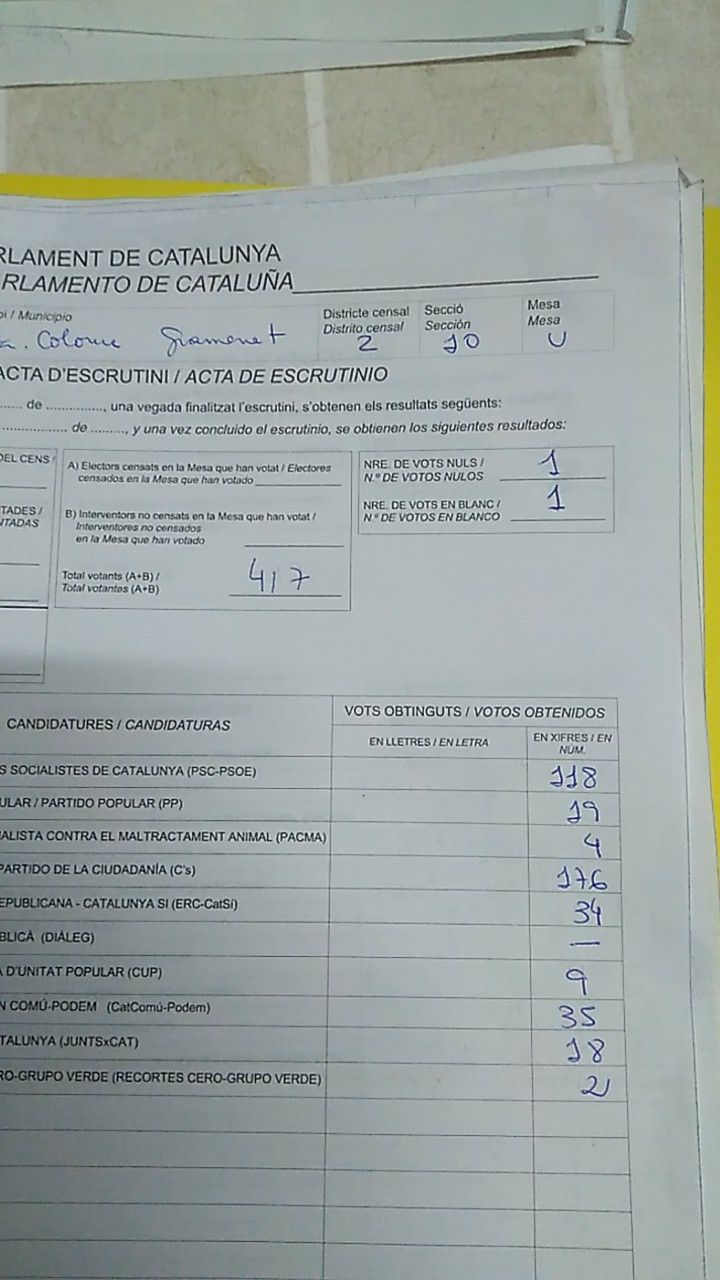 RLAMENT DE CATALUNYA
RLAMENTO DE CATALUÑA
pi / Municipio
a. Coloma Gramenet
Districte censal
Distrito censal
2
Secció
Sección
10
Mesa
Mesa
U
ACTA D'ESCRUTINI / ACTA DE ESCRUTINIO
...... de ..............., una vegada finalitzat l'escrutini, s'obtenen els resultats següents:
.................. de ........., y una vez concluido el escrutinio, se obtienen los siguientes resultados:
DEL CENS /
TADES /
NTADAS
A) Electors censats en la Mesa que han votat / Electores
censados en la Mesa que han votado
B) Interventors no censats en la Mesa que han votat /
Interventores no censados
en la Mesa que han votado
Total votants (A+B) /
Total votantes (A+B)
417
NRE. DE VOTS NULS /
N.º DE VOTOS NULOS
1
NRE. DE VOTS EN BLANC /
N.º DE VOTOS EN BLANCO
1
CANDIDATURES / CANDIDATURAS
VOTS OBTINGUTS / VOTOS OBTENIDOS
EN LLETRES / EN LETRA
EN XIFRES / EN
NÚM.
S SOCIALISTES DE CATALUNYA (PSC-PSOE) 118
ULAR / PARTIDO POPULAR (PP) 19
ALISTA CONTRA EL MALTRACTAMENT ANIMAL (PACMA) 4
PARTIDO DE LA CIUDADANÍA (C's) 176
EPUBLICANA - CATALUNYA SI (ERC-CatSí) 34
BLICÀ (DIÀLEG) —
A D'UNITAT POPULAR (CUP) 9
N COMÚ-PODEM (CatComú-Podem) 35
TALUNYA (JUNTSxCAT) 18
RO-GRUPO VERDE (RECORTES CERO-GRUPO VERDE) 2